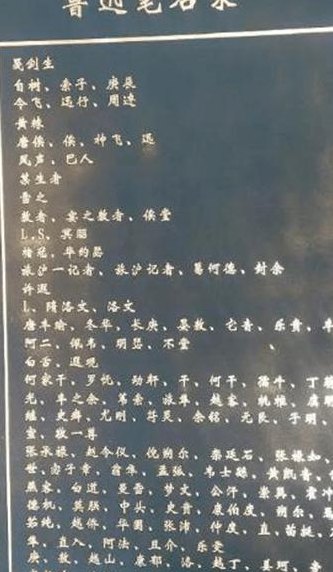 鲁迅笔名录
戛剑生
自树、索子、庚辰
令飞、迅行、周逴
黄棘
唐俟、俟、神飞、迅
风声、巴人
某生者
雪之
敖者、宴之敖者、俟堂
L.S、冥昭
楮冠、华约瑟
旅沪一记者、旅沪记者、葛何德、封余
许遐
L、隋洛文、洛文
唐丰瑜、冬华、长庚、晏敖、它音、乐贲、
阿二、佩韦、明瑟、不堂
白舌、遐观
何家干、罗怃、动轩、干、何干、孺牛、丁
光、丰之余、苇索、旅隼、越客、桃椎、虞明
继、史癖、尤刚、符灵、余铭、元艮、子明、
宣、敬一尊
张承禄、赵令仪、倪朔尔、栾廷石、张禄如
世、邓子章、翁隼、孟弧、韦士繇、黄凯音、
燕客、白道、曼雪、梦文、公汗、崇巽、霍
德机、莫朕、中头、史贲、康伯度、朔尔、
茹纯、越侨、华圉、张沛、仲度、直、苗挺、
隼、直入、阿法、且介、乐雯
庚、敖、越山、康郁、洛、越丁、姜珂、